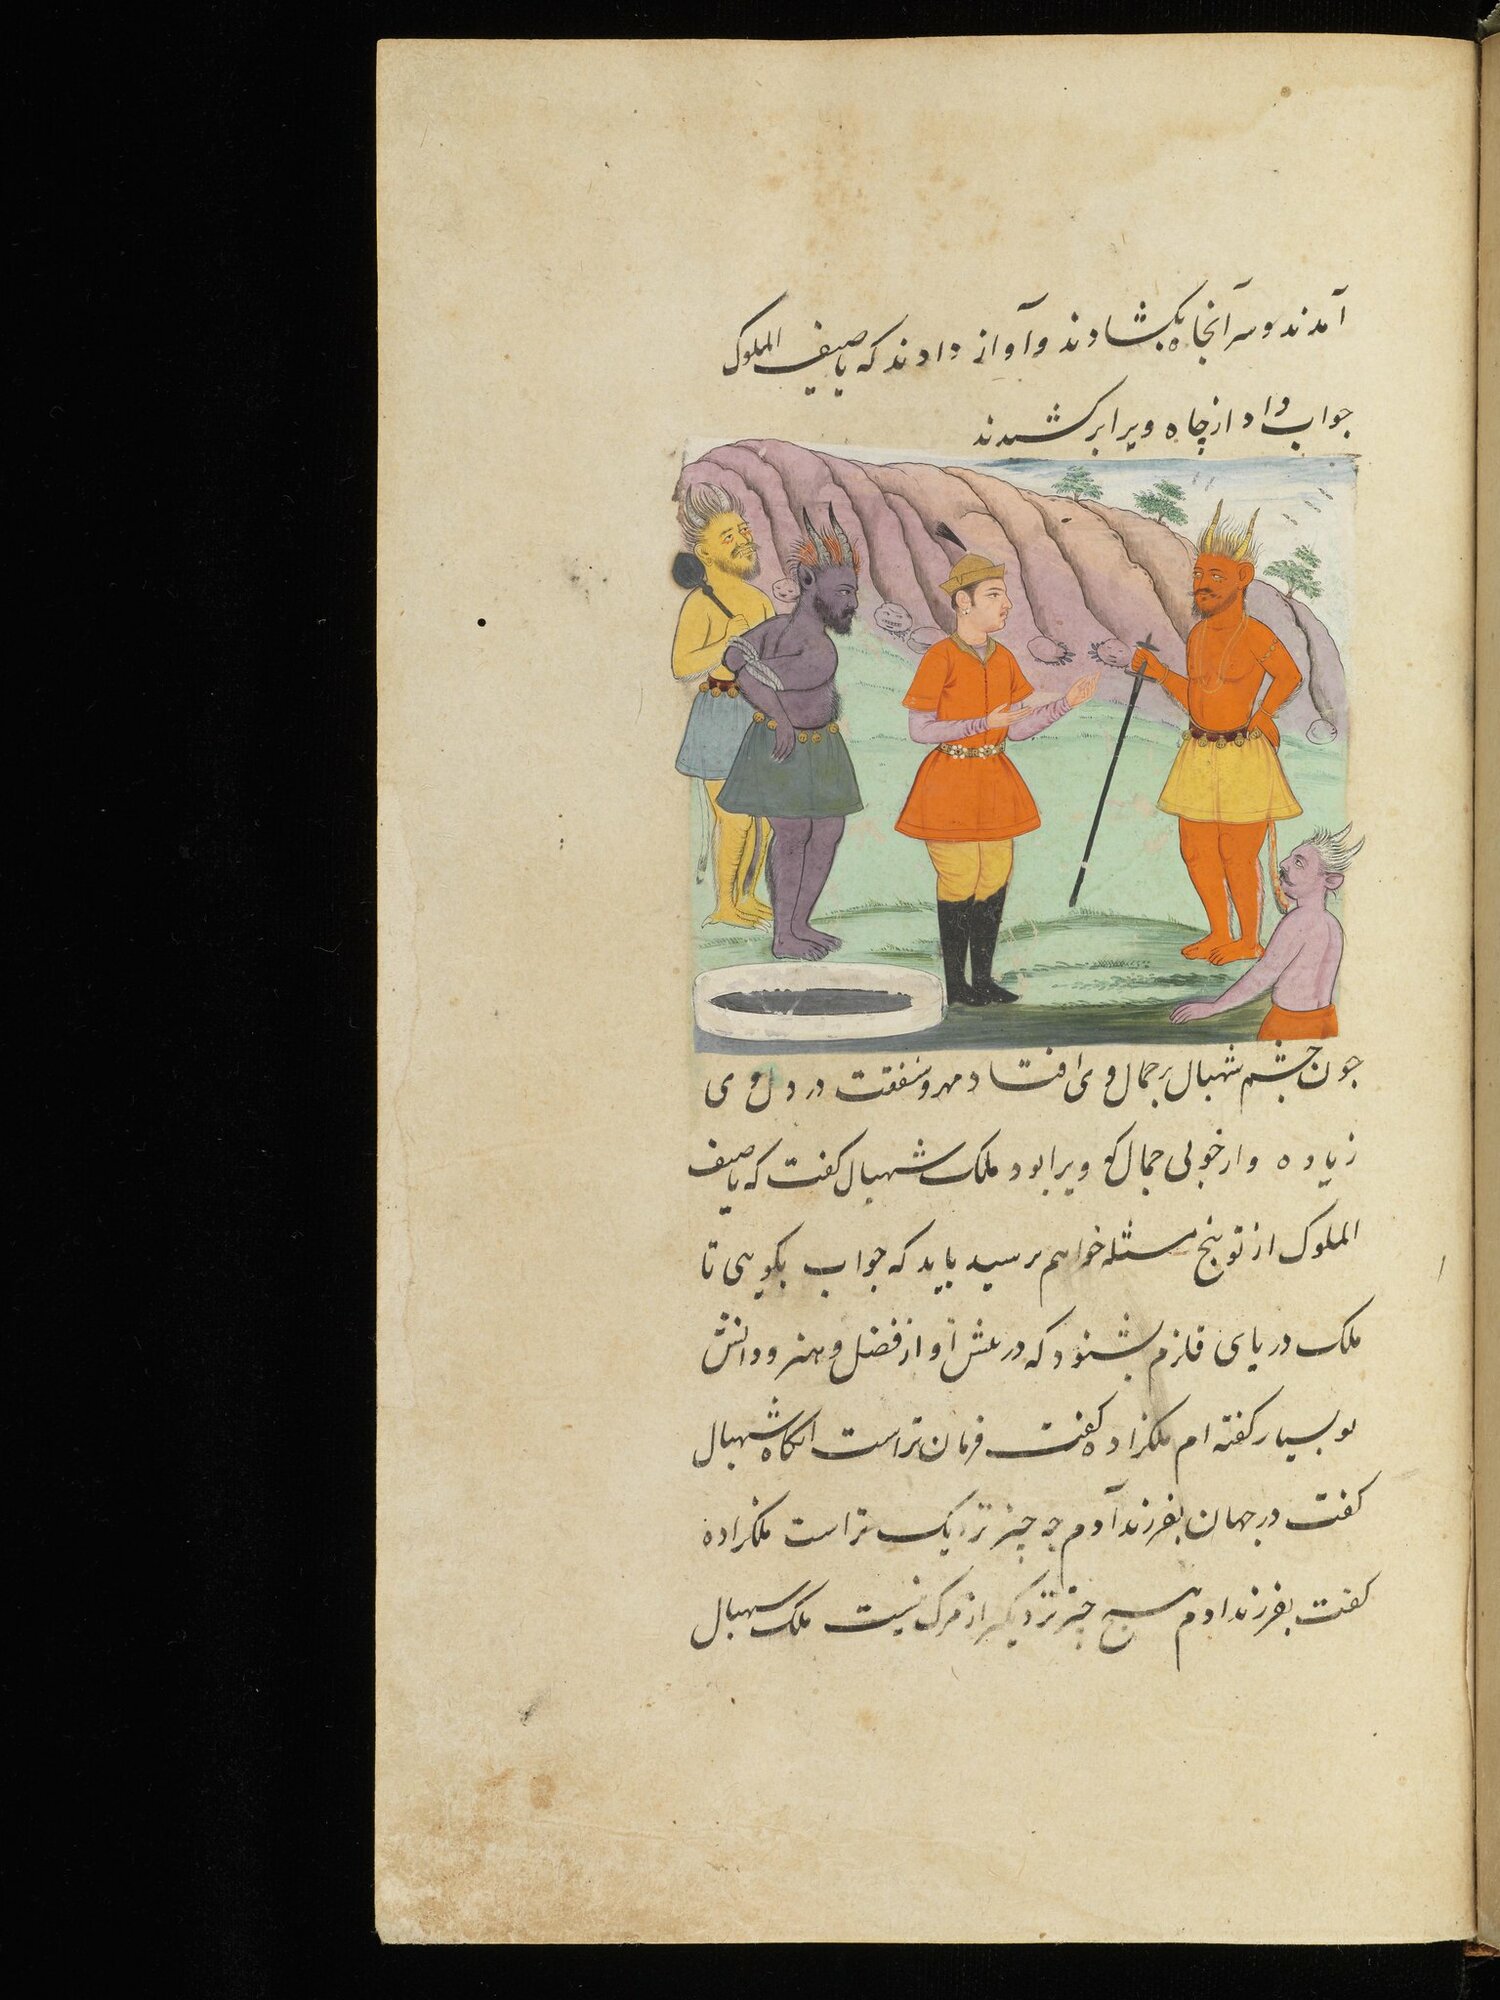 آمدند و سر آنچاه بکشادند و آواز دادند که یا صیف الملوک
جواب داد از چاه ویرا بر کشیدند
جون چشم شهبال بر جمال وی افتاد مهر و شفقت در دل وی
زیاده و از خوبی جمال که ویرا بود ملک شهبال کفت که یا صیف
الملوک از تو پنج مسئله خواهم برسید باید که جواب بکویی تا
ملک دریای قلزم بشنود که در پیش او از فضل و هنر و دانش
تو بسیار کفته ام ملکزاده کفت فرمان تراست انکاه شهبال
کفت در جهان بفرزند آدم جه چیز نزدیک تر است ملکزاده
کفت بفرزند ادم هیچ چیز نزدیکتر از مرک نیست ملک شهبال